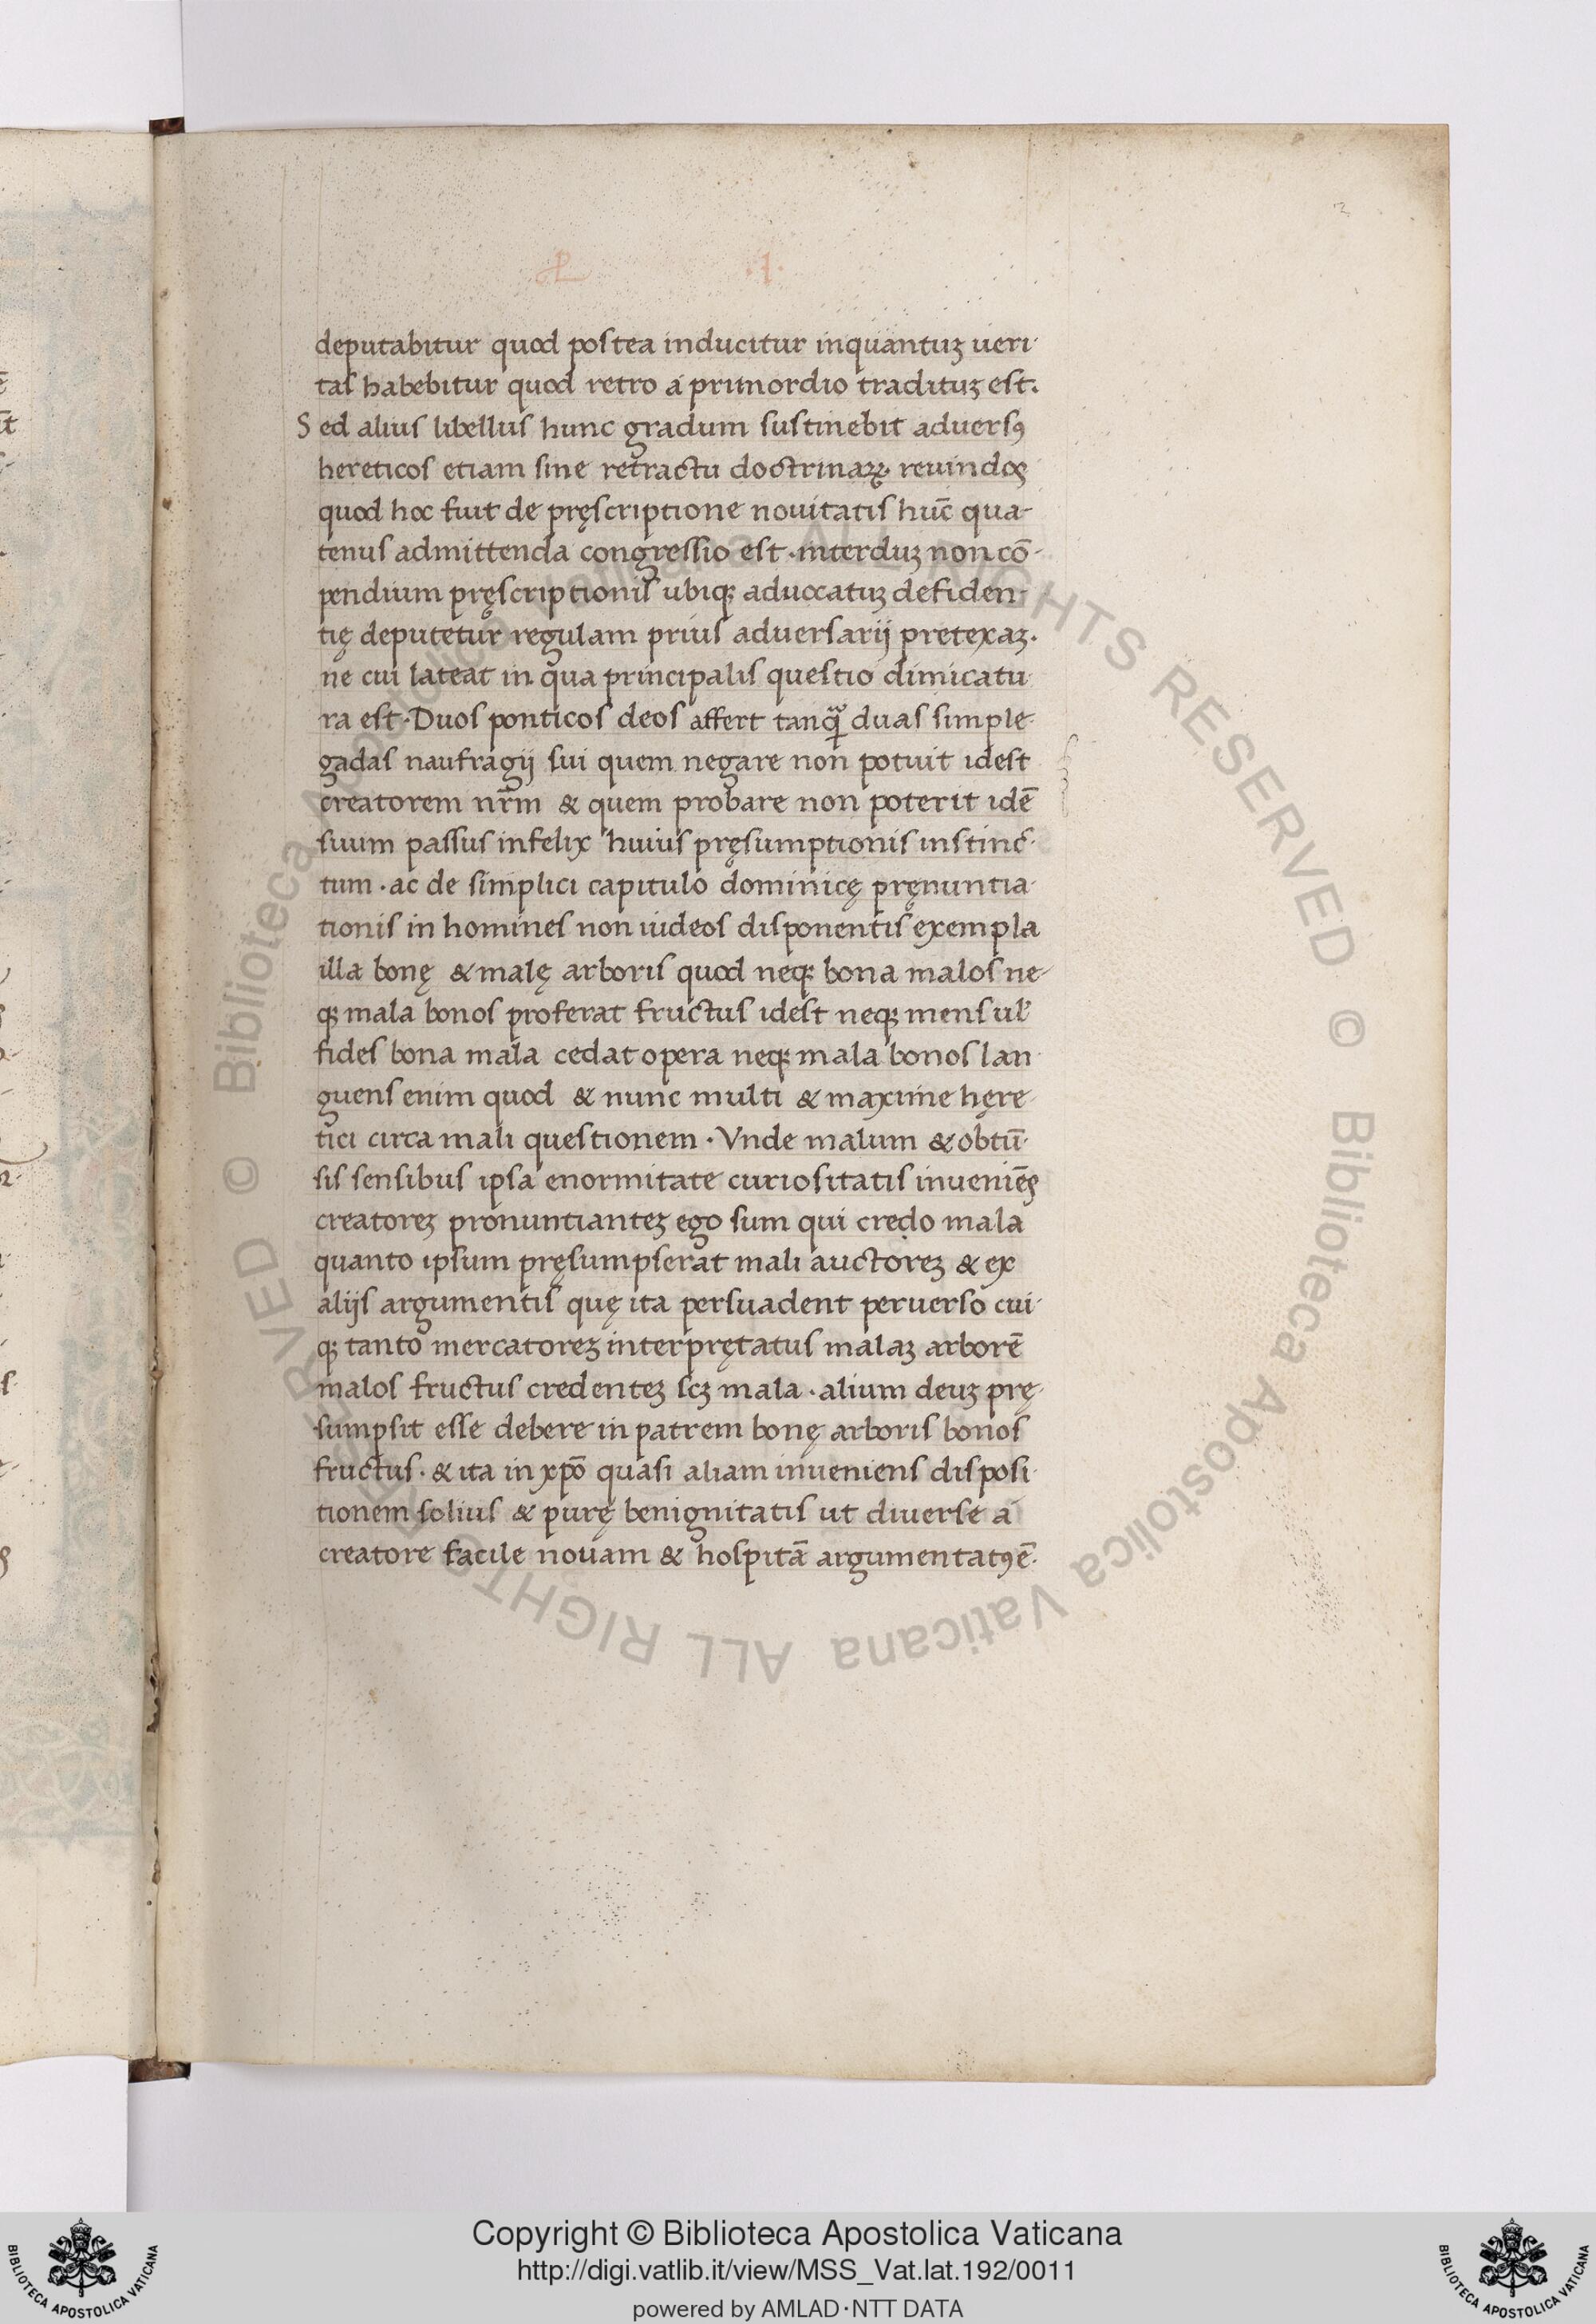 3
L .I.
deputabitur quod postea inducitur inquantuꝫ ueri-
tas habebitur quod retro a primordio tradituꝫ est.
Sed alius libellus hunc gradum sustinebit aduersꝰ
hereticos etiam sine retractu doctrinaꝝ reuindos
quod hoc fuit de pręscriptione nouitatis huc̄ qua-
tenus admittenda congressio est · interduꝫ non cō-
pendium pręscriptionis ubiqꝫ aduocatuꝫ defiden-
tię deputetur regulam prius aduersarij pretexaꝫ.
ne cui lateat in qua principalis questio dimicatu-
ra est · Duos ponticos deos affert tanꝗ̃ duas simple-
gadas naufragij sui quem negare non potuit idest
creatorem nr̄m & quem probare non poterit idē
suum passus infelix huius pręsumptionis instinc-
tum · ac de simplici capitulo dominicę pręnuntia-
tionis in homines non iudeos disponentis exempla
illa bonę & malę arboris quod neqꝫ bona malos ne-
qꝫ mala bonos proferat fructus idest neqꝫ mens ul'
fides bona mala cedat opera neqꝫ mala bonos lan-
guens enim quod & nunc multi & maxime hęre-
tici circa mali questionem · Vnde malum & obtū-
sis sensibus ipsa enormitate curiositatis inueniēs
creatoreꝫ pronuntianteꝫ ego sum qui credo mala
quanto ipsum pręsumpserat mali auctoreꝫ & ex
alijs argumentis quę ita persuadent peruerso cui-
qꝫ tanto mercatoreꝫ interprętatus malaꝫ arborē
malos fructus credenteꝫ scꝫ mala · alium deuꝫ prę-
sumpsit esse debere in patrem bonę arboris bonos
fructus · & ita in xp̄o quasi aliam inueniens disposi-
tionem solius & purę benignitatis ut diuerse a
creatore facile nouam & hospitā argumentatꝰ ē.
© Biblioteca Apostolica Vaticana ALL RIGHTS RESERVED © Biblioteca Apostolica Vaticana ALL RIGHTS RESERVED
Copyright © Biblioteca Apostolica Vaticana
http://digi.vatlib.it/view/MSS_Vat.lat.192/0011
powered by AMLAD·NTT DATA
BIBLIOTECA APOSTOLICA VATICANA
BIBLIOTECA APOSTOLICA VATICANA